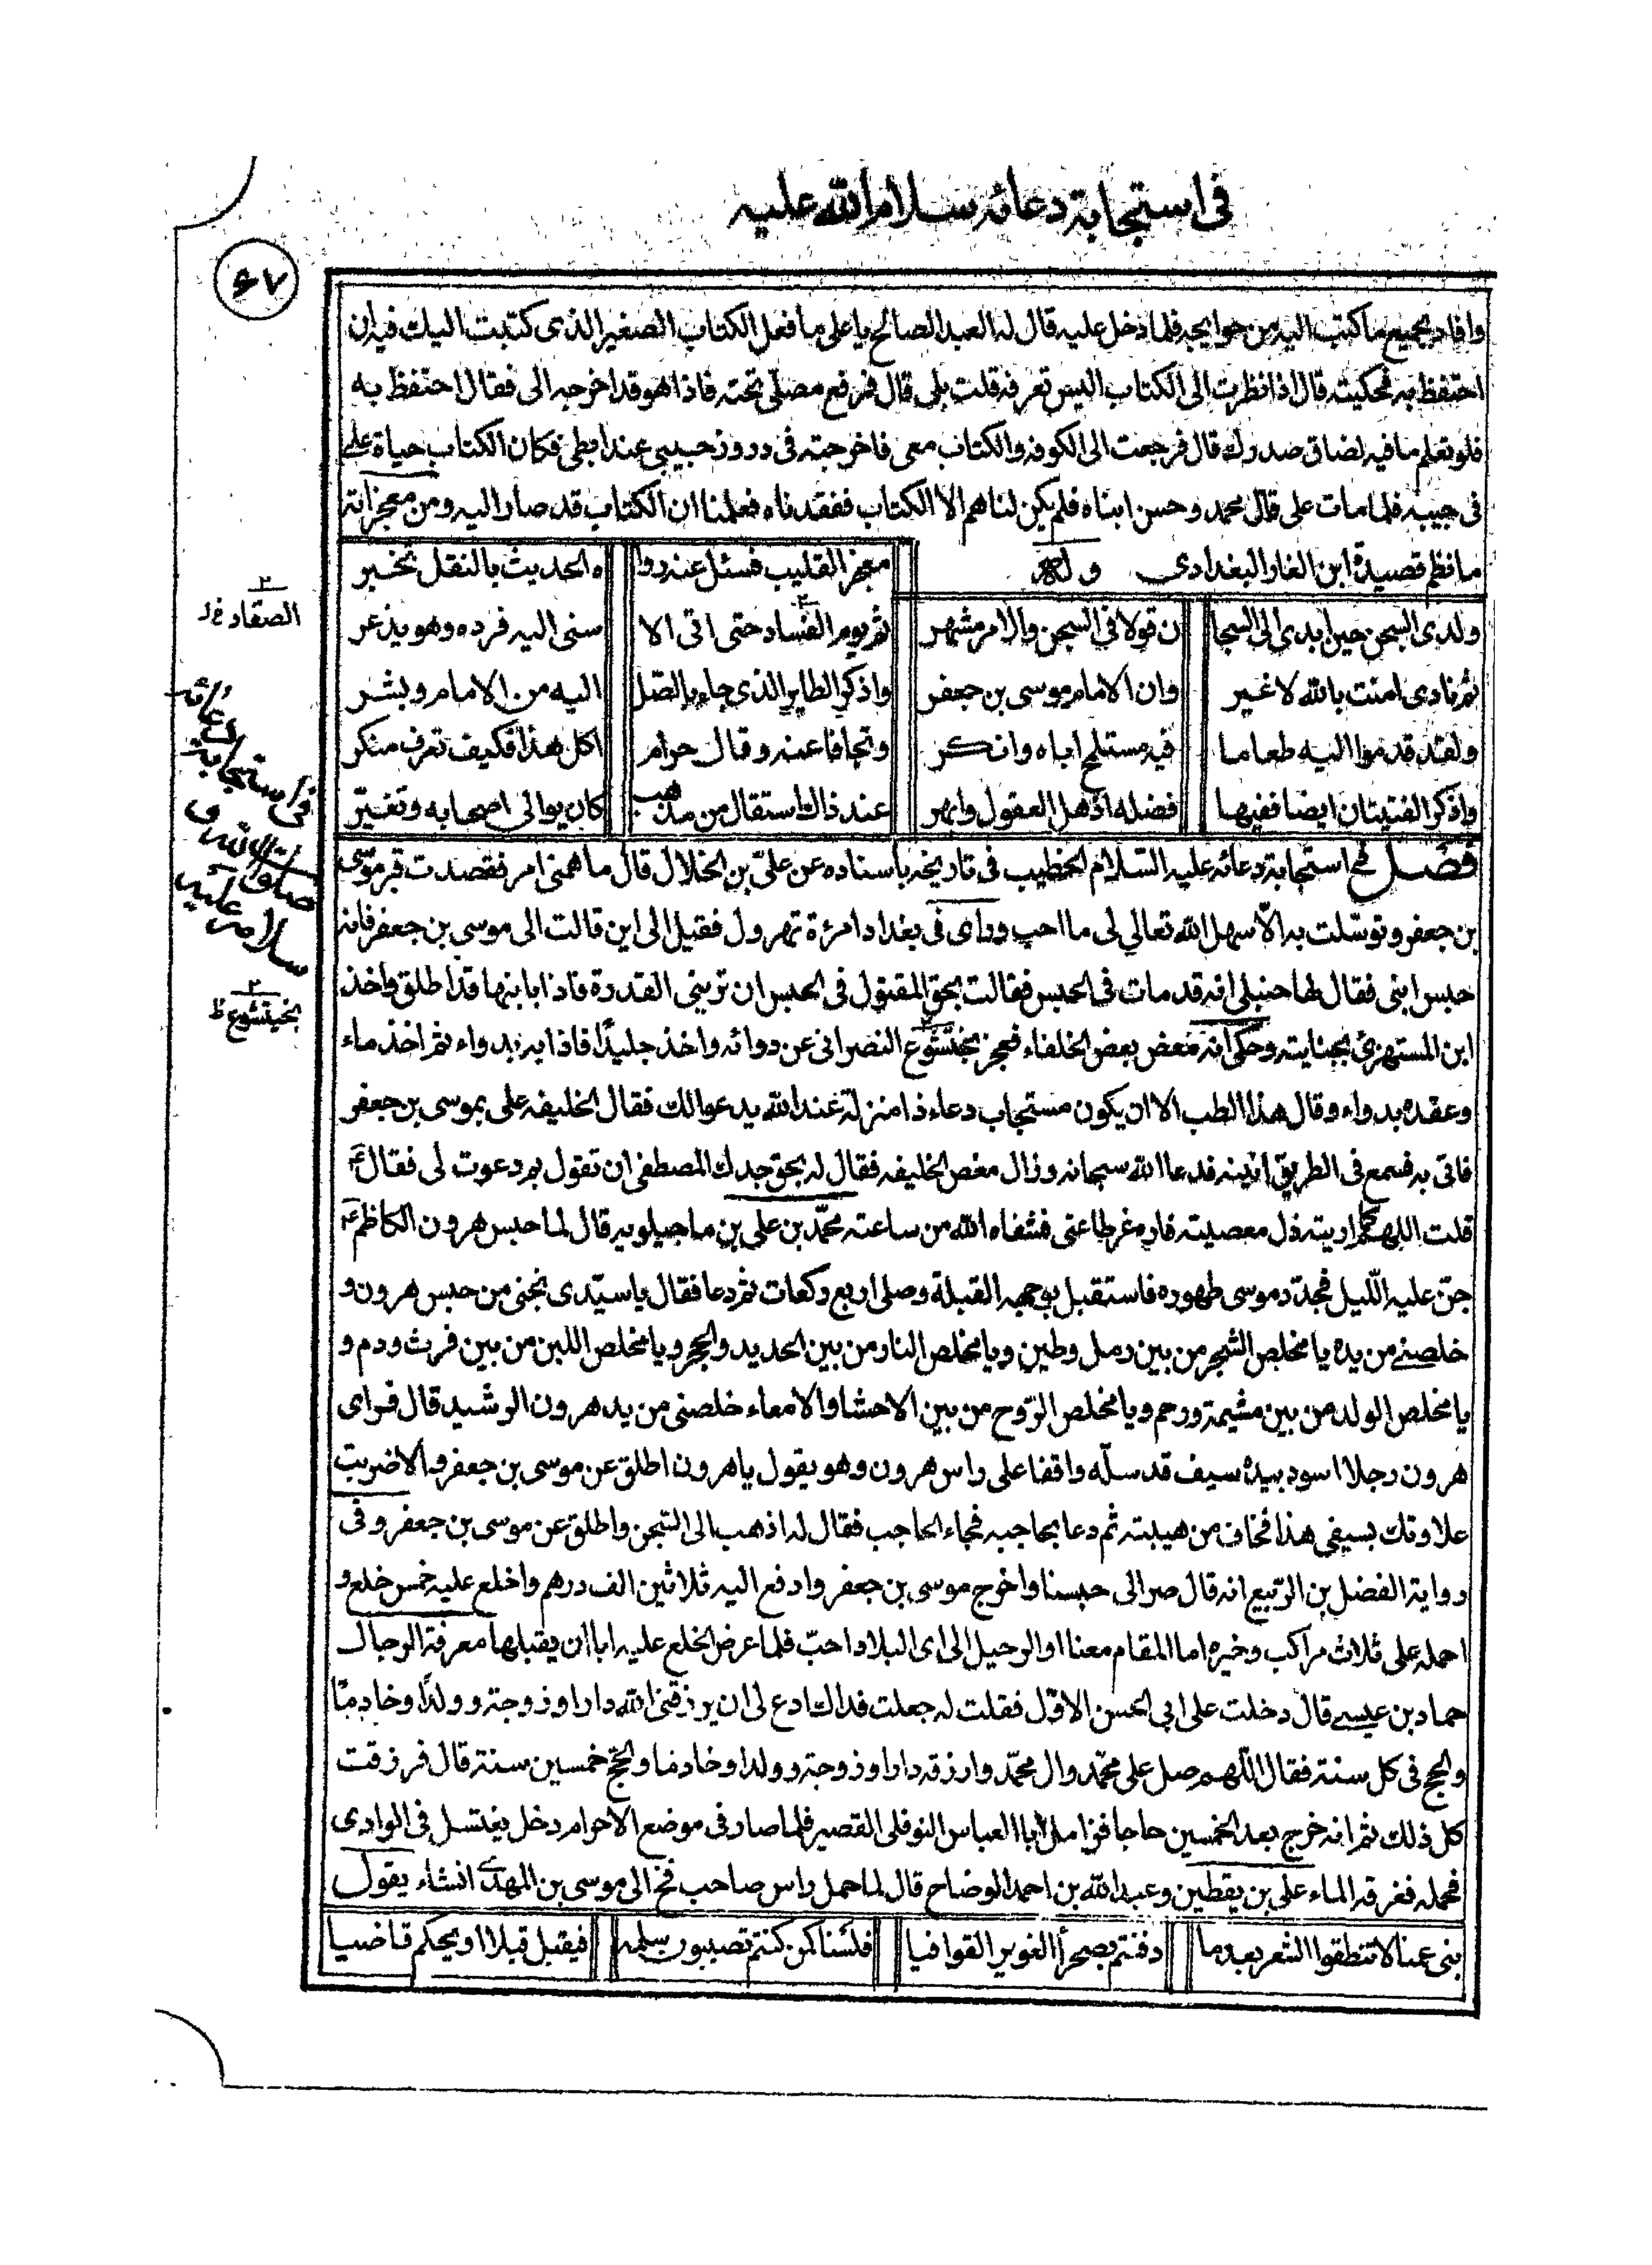 في استجابة دعائه سلام الله عليه
٦٧
وافاد بجميع ما كتب اليه من حوايجه فلما دخل عليه قال له العبد الصالح يا على ما فعل الكتاب الصغير الذى كتبت اليك فيه ان
احتفظ به فحكيته قال اذا نظرت الى الكتاب اليس تعرفه قلت بلى قال فرفع مصلى تحته فاذا هو قد اخرجه الى فقال احتفظ به
فلو تعلم ما فيه لضاق صدرك قال فرجعت الى الكوفه والكتاب معى فاخرجته فى دروز جيبي عند ابطى فكان الكتاب حياة على
فى جيبه فلما مات على قال محمد وحسن ابناه فلم يكن لنا هم الا الكتاب ففقدناه فعلمنا ان الكتاب قد صار اليه ومن معجزاته
ما نظم قصيدة ابن الغار البغدادى وله معجز القليب فسئل عنه روا ه الحديث بالنقل تخبر
ولدى السجن حين ابدى الى السجا ن قولا فى السجن والامر مشهر ثم يوم الفساد حتى اتى الا سنى اليه فرده وهو يذعر
ثم نادى امنت بالله لا غير وان الامام موسى بن جعفر واذكر الطاير الذى جاء بالصك اليه من الامام وبشر
ولقد قدموا اليه طعاما فيه مستلمح اباه وانكر وتجافا عنه وقال حرام اكل هذا فكيف تعرف منكر
واذكر الفتيتان ايضا ففيها فضله اذهل العقول وابهر عند ذاك استقال من مذهب كان يوالى اصحابه وتغير
فصل فى استجابة دعائه عليه السلام الخطيب فى تاريخه باسناده عن على بن الخلال قال ما همنى امر فقصدت قبر موسى
بن جعفر وتوسلت به الا سهل الله تعالي لى ما احب وراى فى بغداد امرءة تهرول فقيل الى اين قالت الى موسى بن جعفر فانه
حبس ابنى فقال لها حنبلى انه قد مات فى الحبس فقالت بحق المقتول فى الحبس ان ترينى القدرة فاذا بابنها قد اطلق واخذ
ابن المستهزئ بجنايته وحكى انه مغص بعض الخلفاء فعجز بختشوع النصرانى عن دوائه واخذ جليدا فاذابه بدواء ثم اخذ ماء
وعقده بدواء وقال هذا الطب الا ان يكون مستجاب دعاء ذا منزلة عند الله يدعو لك فقال الخليفه على بموسى بن جعفر
فاتى به فسمع فى الطريق انينه فدعا الله سبحانه وزال مغص الخليفه فقال له بحق جدك المصطفى ان تقول بم دعوت لى فقال ع
قلت اللهم كما اريته ذل معصيته فاره عز طاعتى فشفاه الله من ساعته محمد بن على بن ماجيلويه قال لما حبس هرون الكاظم ع
جن عليه الليل فجدد موسى طهوره فاستقبل بوجهه القبلة وصلى اربع ركعات ثم دعا فقال يا سيدى نجنى من حبس هرون و
خلصنى من يده يا مخلص الشجر من بين رمل وطين ويا مخلص النار من بين الحديد والحجر ويا مخلص اللبن من بين فرث ودم و
يا مخلص الولد من بين مشيمة ورحم ويا مخلص الروح من بين الاحشا والامعاء خلصنى من يد هرون الرشيد قال فراى
هرون رجلا اسود بيده سيف قد سله واقفا على راس هرون وهو يقول يا هرون اطلق عن موسى بن جعفر والا ضربت
علاوتك بسيفى هذا فخاف من هيبته ثم دعا بحاجبه فجاء الحاجب فقال له اذهب الى السجن واطلق عن موسى بن جعفر وفى
رواية الفضل بن الربيع انه قال صر الى حبسنا واخرج موسى بن جعفر وادفع اليه ثلاثين الف درهم واخلع عليه خمس خلع و
احمله على ثلاث مراكب وخيره اما المقام معنا او الرحيل الى اى البلاد احب فلما عرض الخلع عليه ابا ان يقبلها معرفة الرجال
حماد بن عيسى قال دخلت على ابى الحسن الاول فقلت له جعلت فداك ادع لى ان يرزقنى الله دارا وزوجة وولدا وخادما
والحج فى كل سنة فقال اللهم صل على محمد وال محمد وارزقه دارا وزوجة وولدا وخادما والحج خمسين سنة قال فرزقت
كل ذلك ثم انه خرج بعد الخمسين حاجا فزامل ابا العباس النوفلى القصير فلما صار فى موضع الاحرام دخل يغتسل فى الوادى
فحمله فغرقه الماء على بن يقطين وعبد الله بن احمد الوضاح قال لما حمل راس صاحب فخ الى موسى بن المهدى انشاء يقول
بنى عمنا لا تنطقوا الشعر بعدما دفنتم بصحرا الغوير القوافيا فلسنا كمن كنتم تصيبون سلمه فيقبل قيلا او يحكم قاضيا
الصفاد خ‌ل
فى استجابة
دعائه
صلوات الله و
سلامه عليه
بخيتشوع ظ